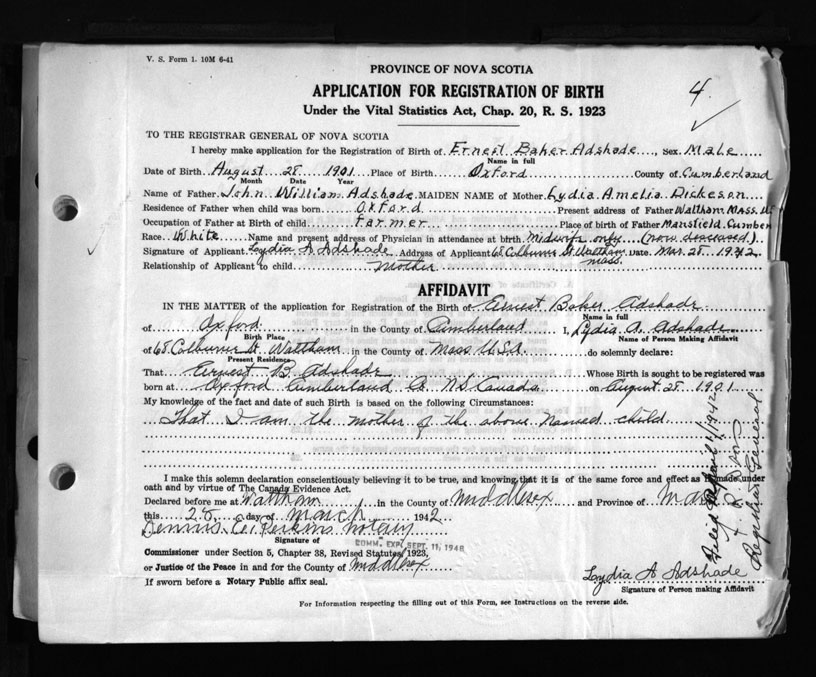 V. S. Form 1. 10M 6-41
PROVINCE OF NOVA SCOTIA
APPLICATION FOR REGISTRATION OF BIRTH
4.
Under the Vital Statistics Act, Chap. 20, R. S. 1923
TO THE REGISTRAR GENERAL OF NOVA SCOTIA
I hereby make application for the Registration of Birth of Ernest Baker Adshade, sex Male
Name in full
Date of Birth August 28 1901 Place of Birth Oxford County of Cumberland
Month Date Year
Name of Father John William Adshade MAIDEN NAME of Mother Lydia Amelia Dickeson
Residence of Father when child was born Oxford Present address of Father Waltham Mass.
Occupation of Father at Birth of child farmer Place of birth of Father Mansfield, Cumber
Race White Name and present address of Physician in attendance at birth Midwife only (now deceased)
Signature of Applicant Lydia A Adshade Address of Applicant 68 Colburne St Waltham Mass. Date Mar. 28 1942
Relationship of Applicant to child Mother
AFFIDAVIT
IN THE MATTER of the application for Registration of the Birth of Ernest Baker Adshade
Name in full
of Oxford in the County of Cumberland I, Lydia A. Adshade
Birth Place Name of Person Making Affidavit
of 68 Colburne St. Waltham in the County of Mass USA do solemnly declare:
Present Residence
That Ernest B. Adshade Whose Birth is sought to be registered was
born at Oxford Cumberland Co NS Canada on August 28 1901
My knowledge of the fact and date of such Birth is based on the following Circumstances:
That I am the mother of the above named child
I make this solemn declaration conscientiously believing it to be true, and knowing that it is of the same force and effect as if made under
oath and by virtue of The Canada Evidence Act.
Declared before me at Waltham in the County of Middlesex and Province of Mass
this 28 day of March 1942
Dennis Perkins Notary
Signature of
COMM. EXP. SEPT. 11, 1948
Commissioner under Section 5, Chapter 38, Revised Statutes 1923,
or Justice of the Peace in and for the County of Middlesex
Lydia A Adshade
If sworn before a Notary Public affix seal.
Signature of Person making Affidavit
For Information respecting the filling out of this Form, see Instructions on the reverse side.
Filed April 1/1942
Registrar General